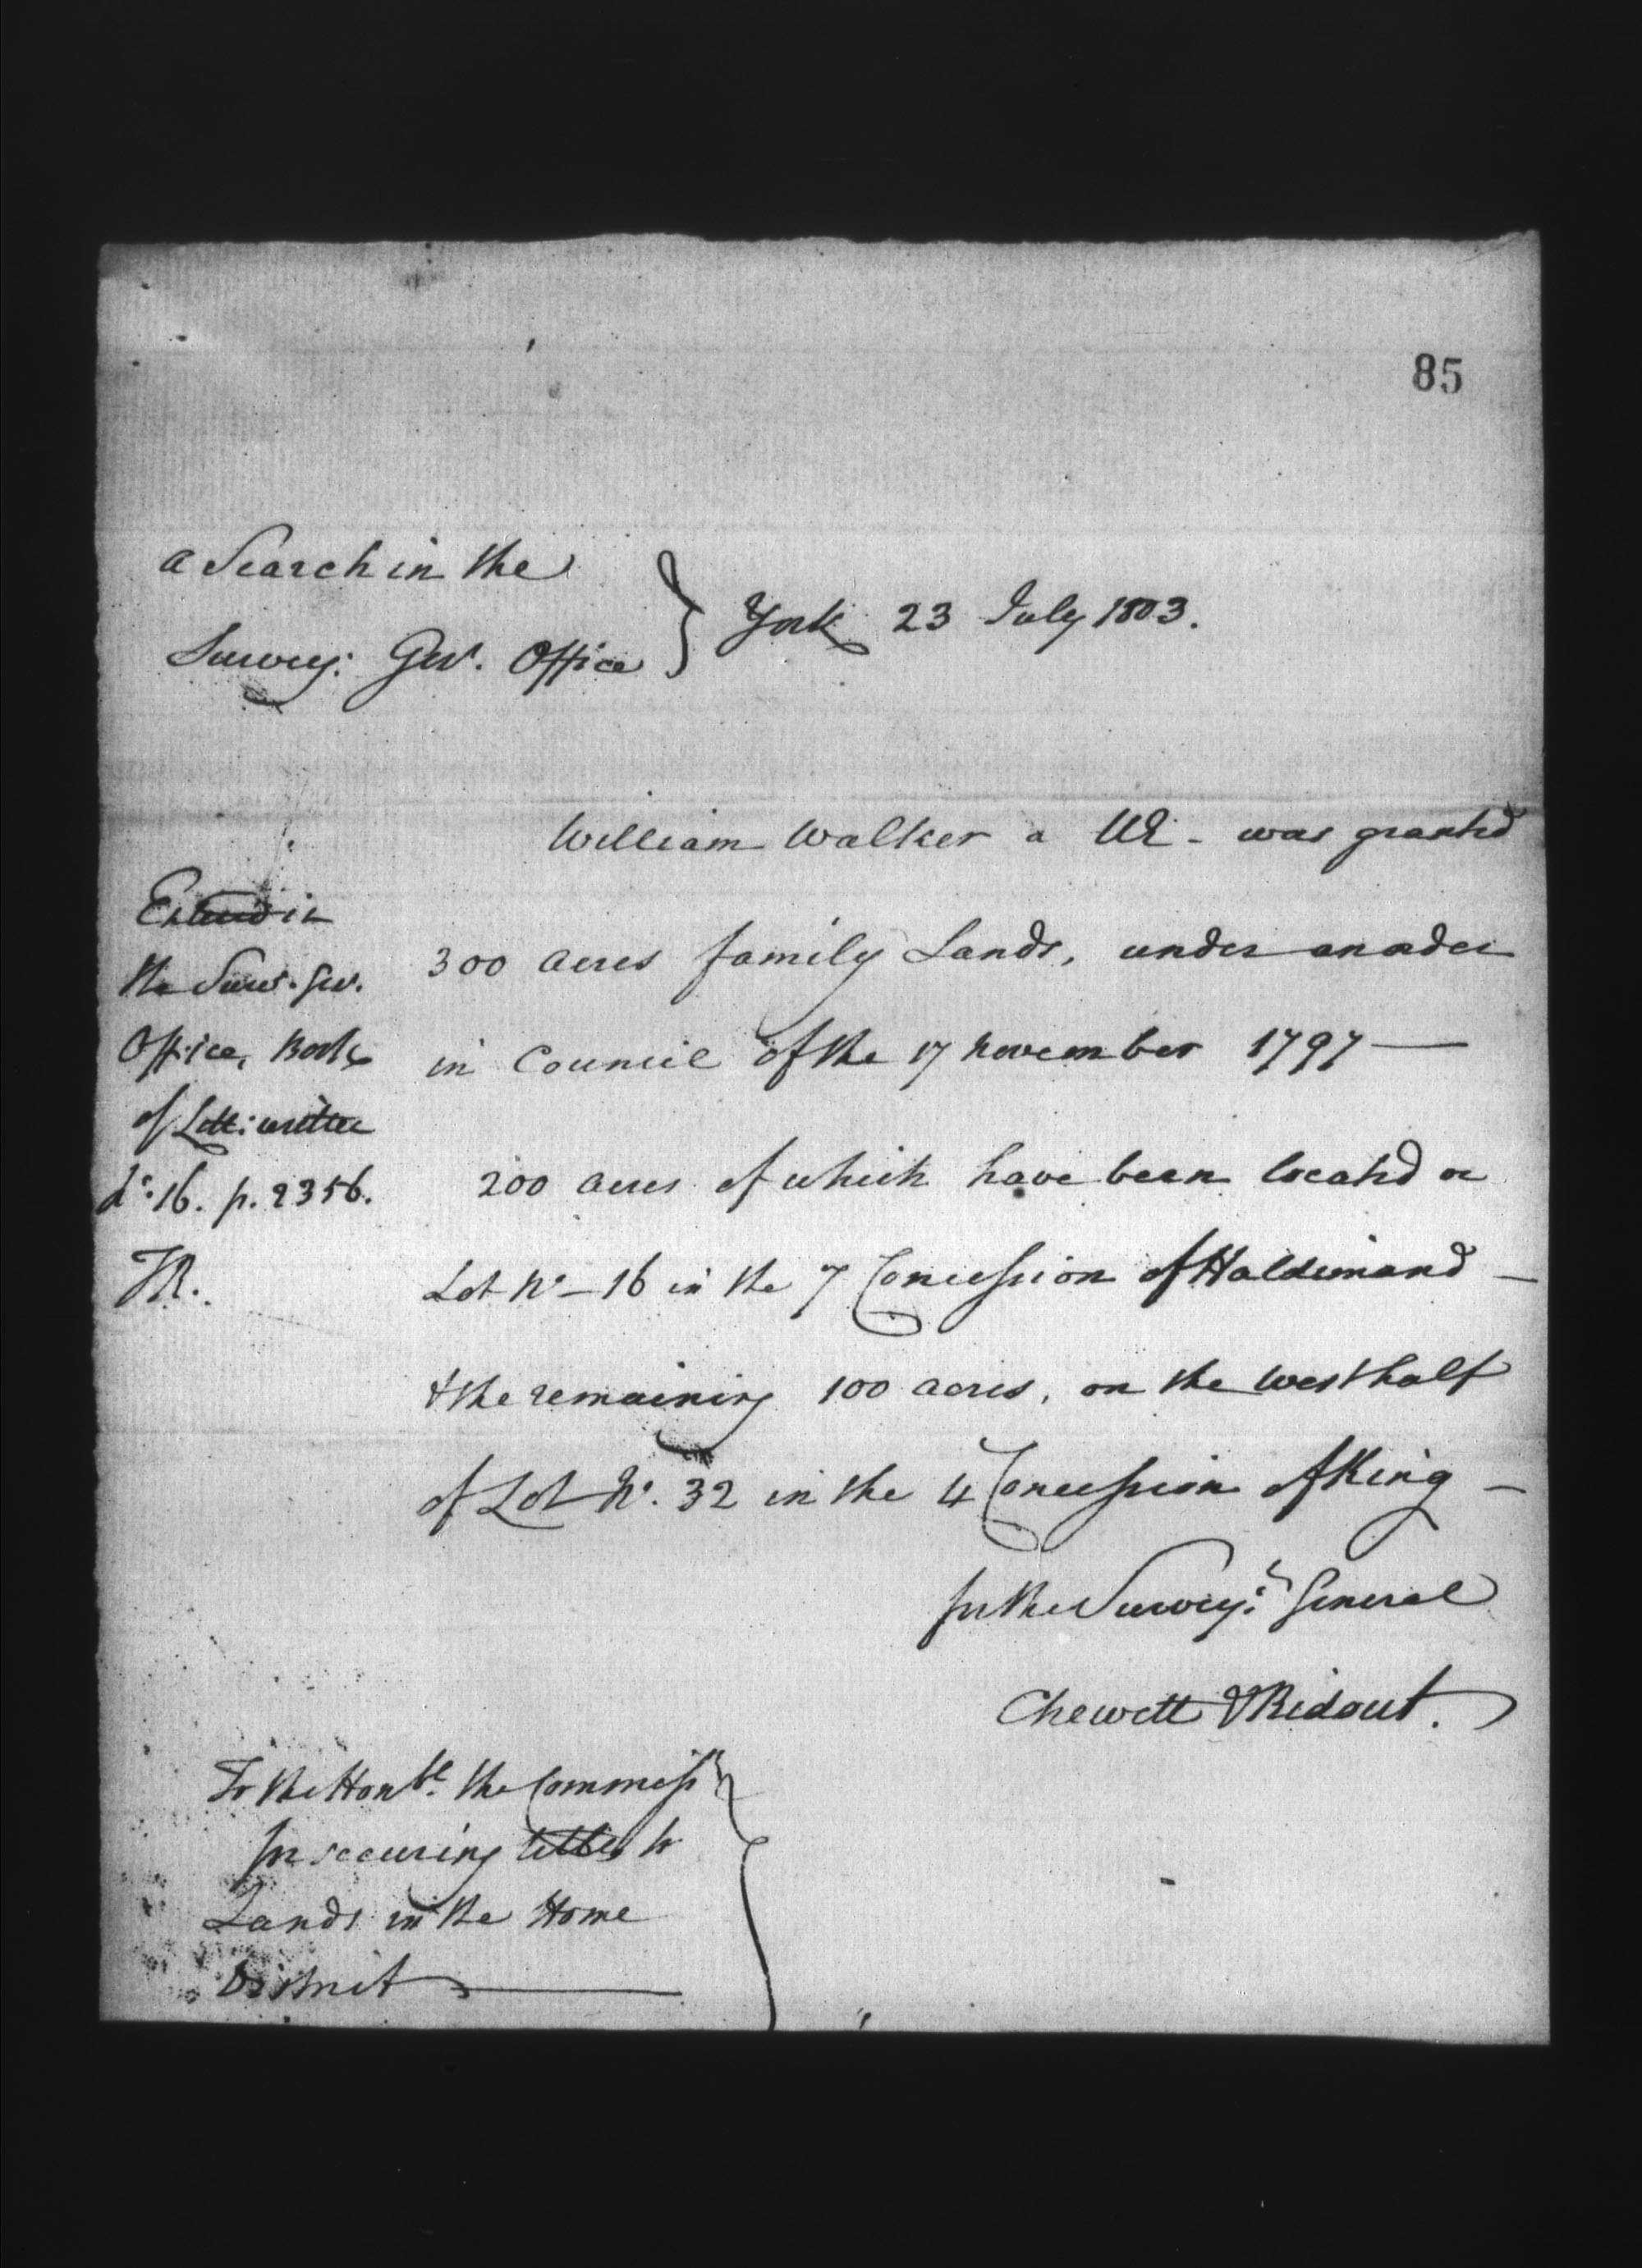 85
a Search in the
Survey: Gen. Office } York 23 July 1803.
William Walker a UE - was granted
300 acres family Lands, under an order
in Council of the 17 November 1797 —
200 acres of which have been located on
Lot No - 16 in the 7 Concession of Haldimand -
& the remaining 100 acres, on the west half
of Lot No. 32 in the 4 Concession of King -
for the Survey:r General
Chewett & Ridout.
Entered in
the Surv. Gen.
Office, Book
of Lett: written
16. p. 2356.
TR.
To the Honble. the Commissrs
for securing titles to
Lands in the Home
District —